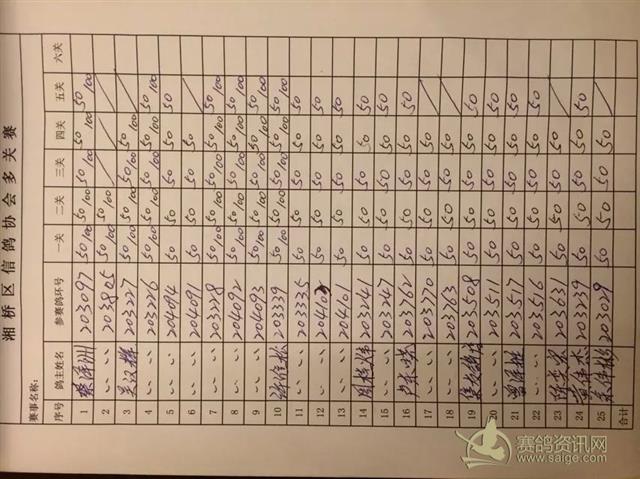 湘桥区信鸽协会多关赛
赛事名称:
序号 鸽主姓名 参赛鸽环号 一关 二关 三关 四关 五关 六关
1 203097 50 100 50 100 50 100 50 100 50 100
2 203805 50 100 50 100
3 203227 50 100 50 100 50 100 50 100
4 203226 50 100 50 100 50 100 50 100 50 100
5 204094 50 50 50 50 50
6 204091 50 50 50 50
7 203228 50 100 50 100 50 100 50 100 50 100
8 204092 50 100 50 100 50 100 50 100 50 100
9 204093 50 100 50 100 50 100 50 100 50 100
10 203339 50 100 50 100 50 100 50 100 50 100
11 203335 50 50 50 50 50
12 50 50 50 50 50
13 204101 50 50 50 50 50
14 203241 50 50 50 50 50
15 203247 50 50 50 50 50
16 203762 50 50 50 50 50
17 203770 50 50 50 50
18 203763 50 50 50 50
19 203508 50 50 50 50 50
20 203511 50 50 50 50 50
21 203517 50 50 50 50 50
22 203516 50 50 50 50 50
23 203631 50 50 50 50
24 203239 50 50 50 50 50
25 203029 50 50 50 50
合计
赛鸽资讯网
www.saige.com